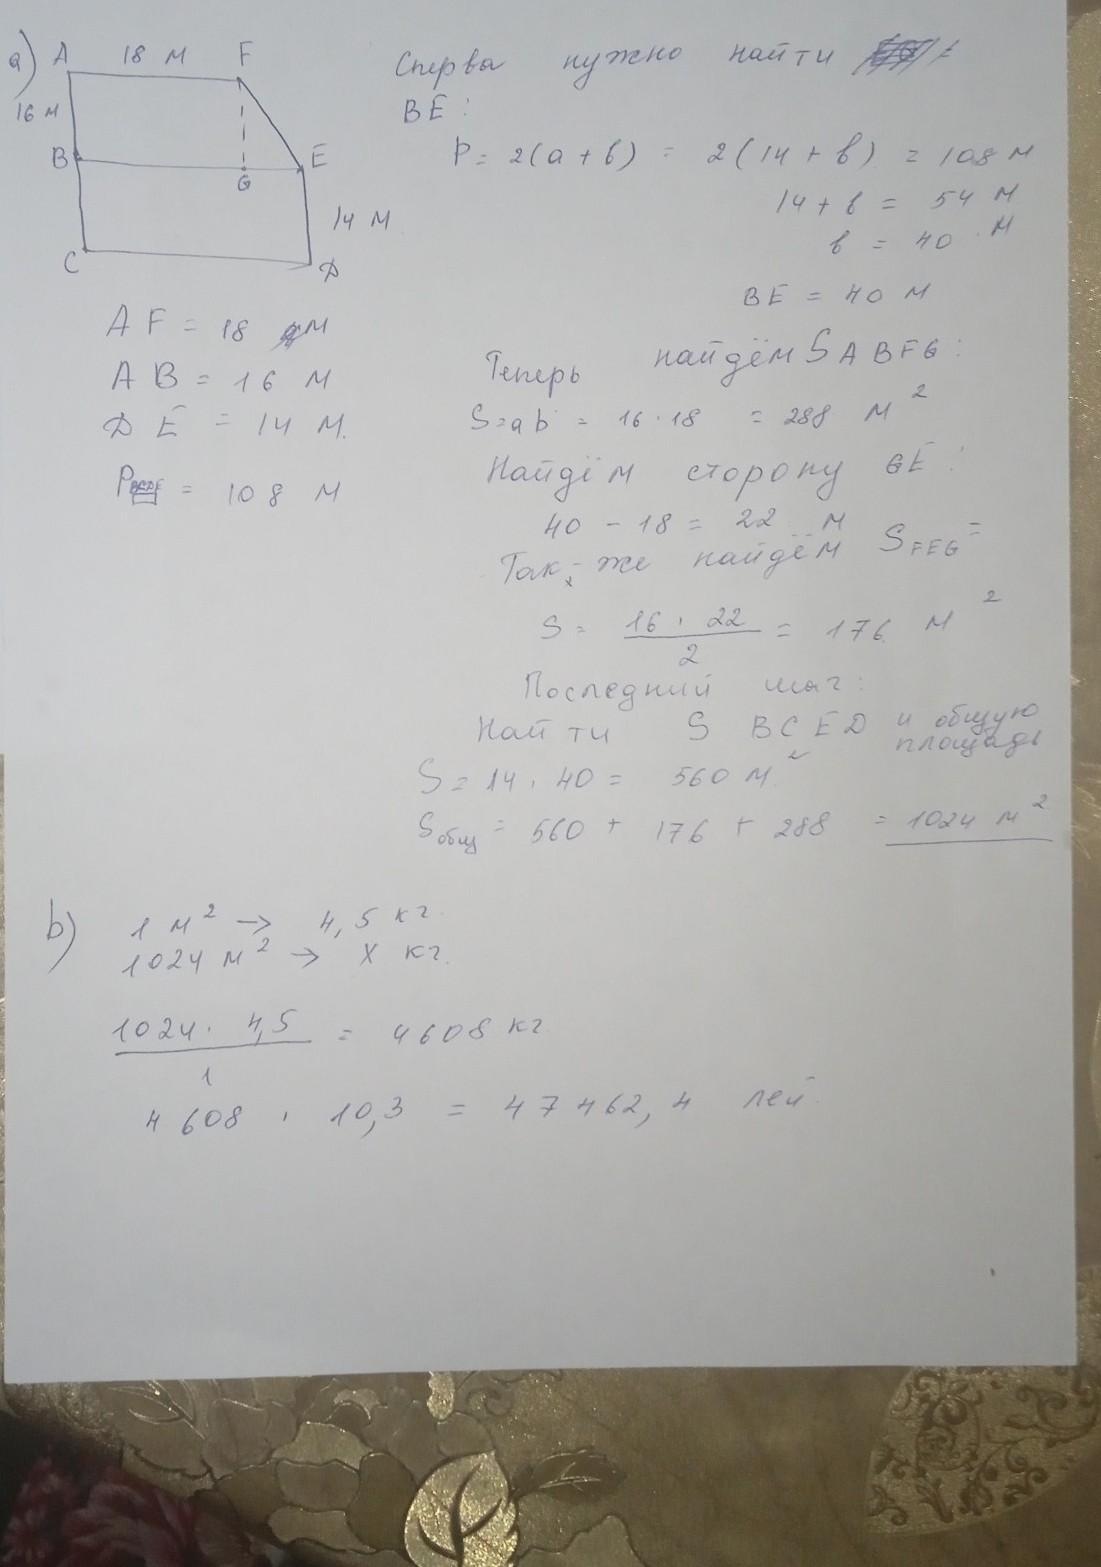 a) A 18 м F
16 м
B
G
E
14 м
C
D
AF = 18 м
AB = 16 м
DE = 14 м.
P = 108 м
Сперва нужно найти
BE:
P = 2(a + b) = 2(14 + b) = 108 м
14 + b = 54 м
b = 40 м
BE = 40 м
Теперь найдём S ABFG:
S = ab = 16 · 18 = 288 м²
Найдём сторону GE:
40 - 18 = 22 м
Так-же найдём S FEG =
S = 16 · 22 / 2 = 176 м²
Последний шаг:
Найти S BCED и общую площадь
S = 14 · 40 = 560 м²
Sобщ = 560 + 176 + 288 = 1024 м²
b) 1 м² → 4,5 кг.
1024 м² → X кг.
1024 · 4,5 / 1 = 4608 кг
4608 · 10,3 = 47462,4 лей.